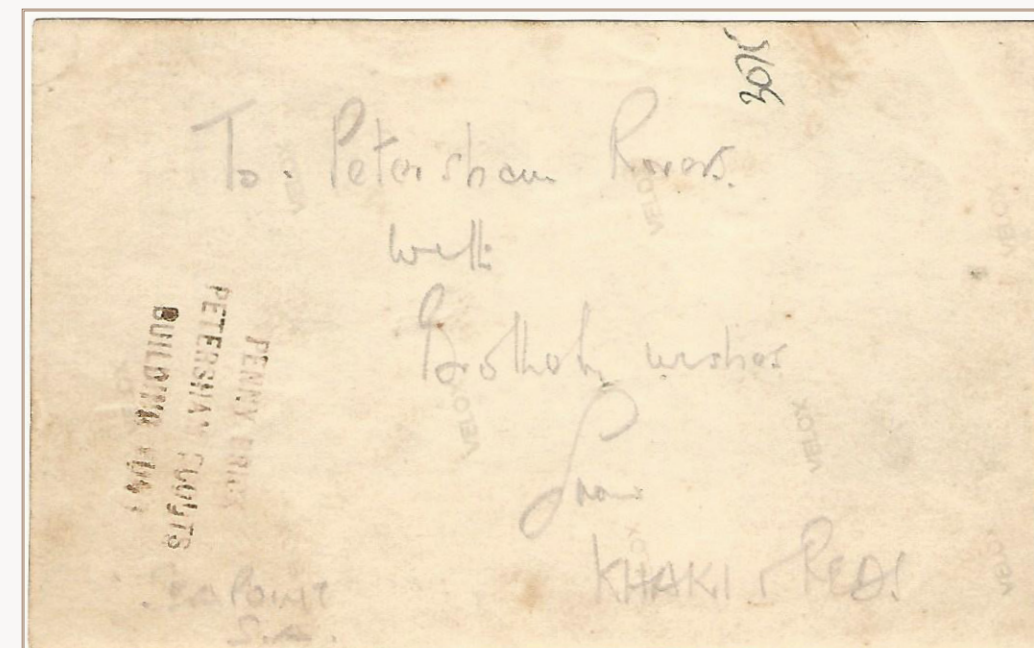 To. Petersham Rovers.
with
Brotherly wishes
From
KHAKI & REDS
PENNY BRICK
PETERSHAM SCOUTS
BUILDING FUND
Sea Point
S.A.
3075
VELOX
VELOX
VELOX
VELOX
VELOX
VELOX
VELOX